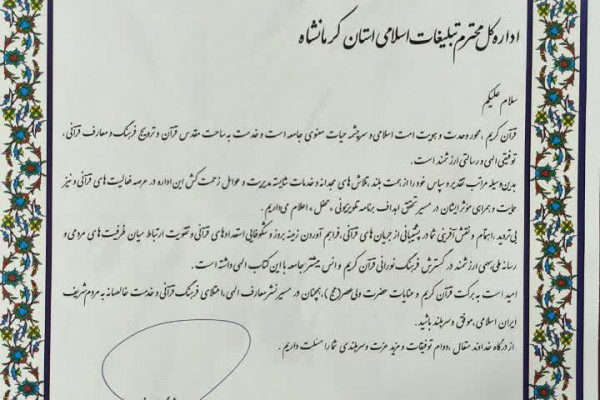 اداره کل محترم تبلیغات اسلامی استان کرمانشاه
سلام علیکم
قرآن کریم، محور وحدت و هویت امت اسلامی و سرچشمه حیات معنوی جامعه است و خدمت به ساحت مقدس قرآن و ترویج فرهنگ و معارف قرآنی،
توفیقی الهی و رسالتی ارزشمند است.
بدین وسیله مراتب تقدیر و سپاس خود را از همت بلند، تلاش های مجدانه و خدمات شایسته مدیریت و عوامل زحمت کش این اداره در عرصه فعالیت های قرآنی و نیز
حمایت و همراهی موثر ایشان در مسیر تحقق اهداف برنامه تلویزیونی «محفل» اعلام می داریم.
بی تردید، اهتمام و نقش آفرینی شما در پشتیبانی از جریان های قرآنی، فراهم آوردن زمینه بروز و شکوفایی استعدادهای قرآنی و تقویت ارتباط میان ظرفیت های مردمی و
رسانه ملی، سهمی ارزشمند در گسترش فرهنگ نورانی قرآن کریم و انس بیشتر جامعه با این کتاب الهی داشته است.
امید است به برکت قرآن کریم و عنایات حضرت ولی عصر(عج)، همچنان در مسیر نشر معارف الهی، اعتلای فرهنگ قرآنی و خدمت خالصانه به مردم شریف
ایران اسلامی، موفق و سربلند باشید.
از درگاه خداوند متعال، دوام توفیقات و مزید عزت و سربلندی شما را مسئلت داریم.